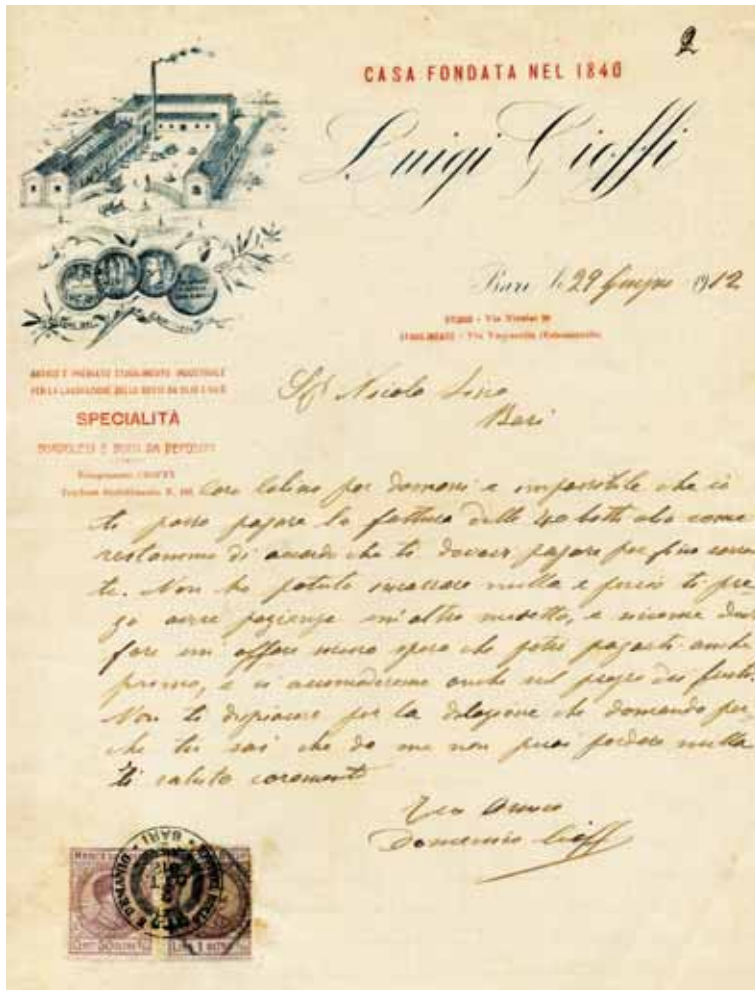 2
CASA FONDATA NEL 1840
Luigi Cioffi
Bari li 29 Giugno 1912
STUDIO - Via Nicolai
STABILIMENTO - Via
ANTICO E PREMIATO STABILIMENTO INDUSTRIALE
PER LA LAVORAZIONE DELLE BOTTI DA OLIO E VINO
SPECIALITÀ
BORDOLESI E BOTTI DA DEPOSITO
Telegrammi: CIOFFI
Telefono Stabilimento, N.
Sig. Nicola
Bari
Caro Colino per domani è impossibile che io
ti posso pagare la fattura delle 40 botti olio come
restammo di accordo che ti dovevo pagare per fine corren
te. Non ho potuto incassare nulla e perciò ti pre
go avere pazienza un'altro mesetto, e siccome devo
fare un affare spero che potrò pagarti anche
prima, e ci accomoderemo anche sul prezzo dei fusti.
Non ti dispiacere per la dilazione che domando per
che tu sai che da me non puoi perdere nulla
ti saluto caramente
Tuo Amico
Domenico Cioffi
MARCA
CENT 50 OLTRE
LIRA 1 OLTRE
BARI